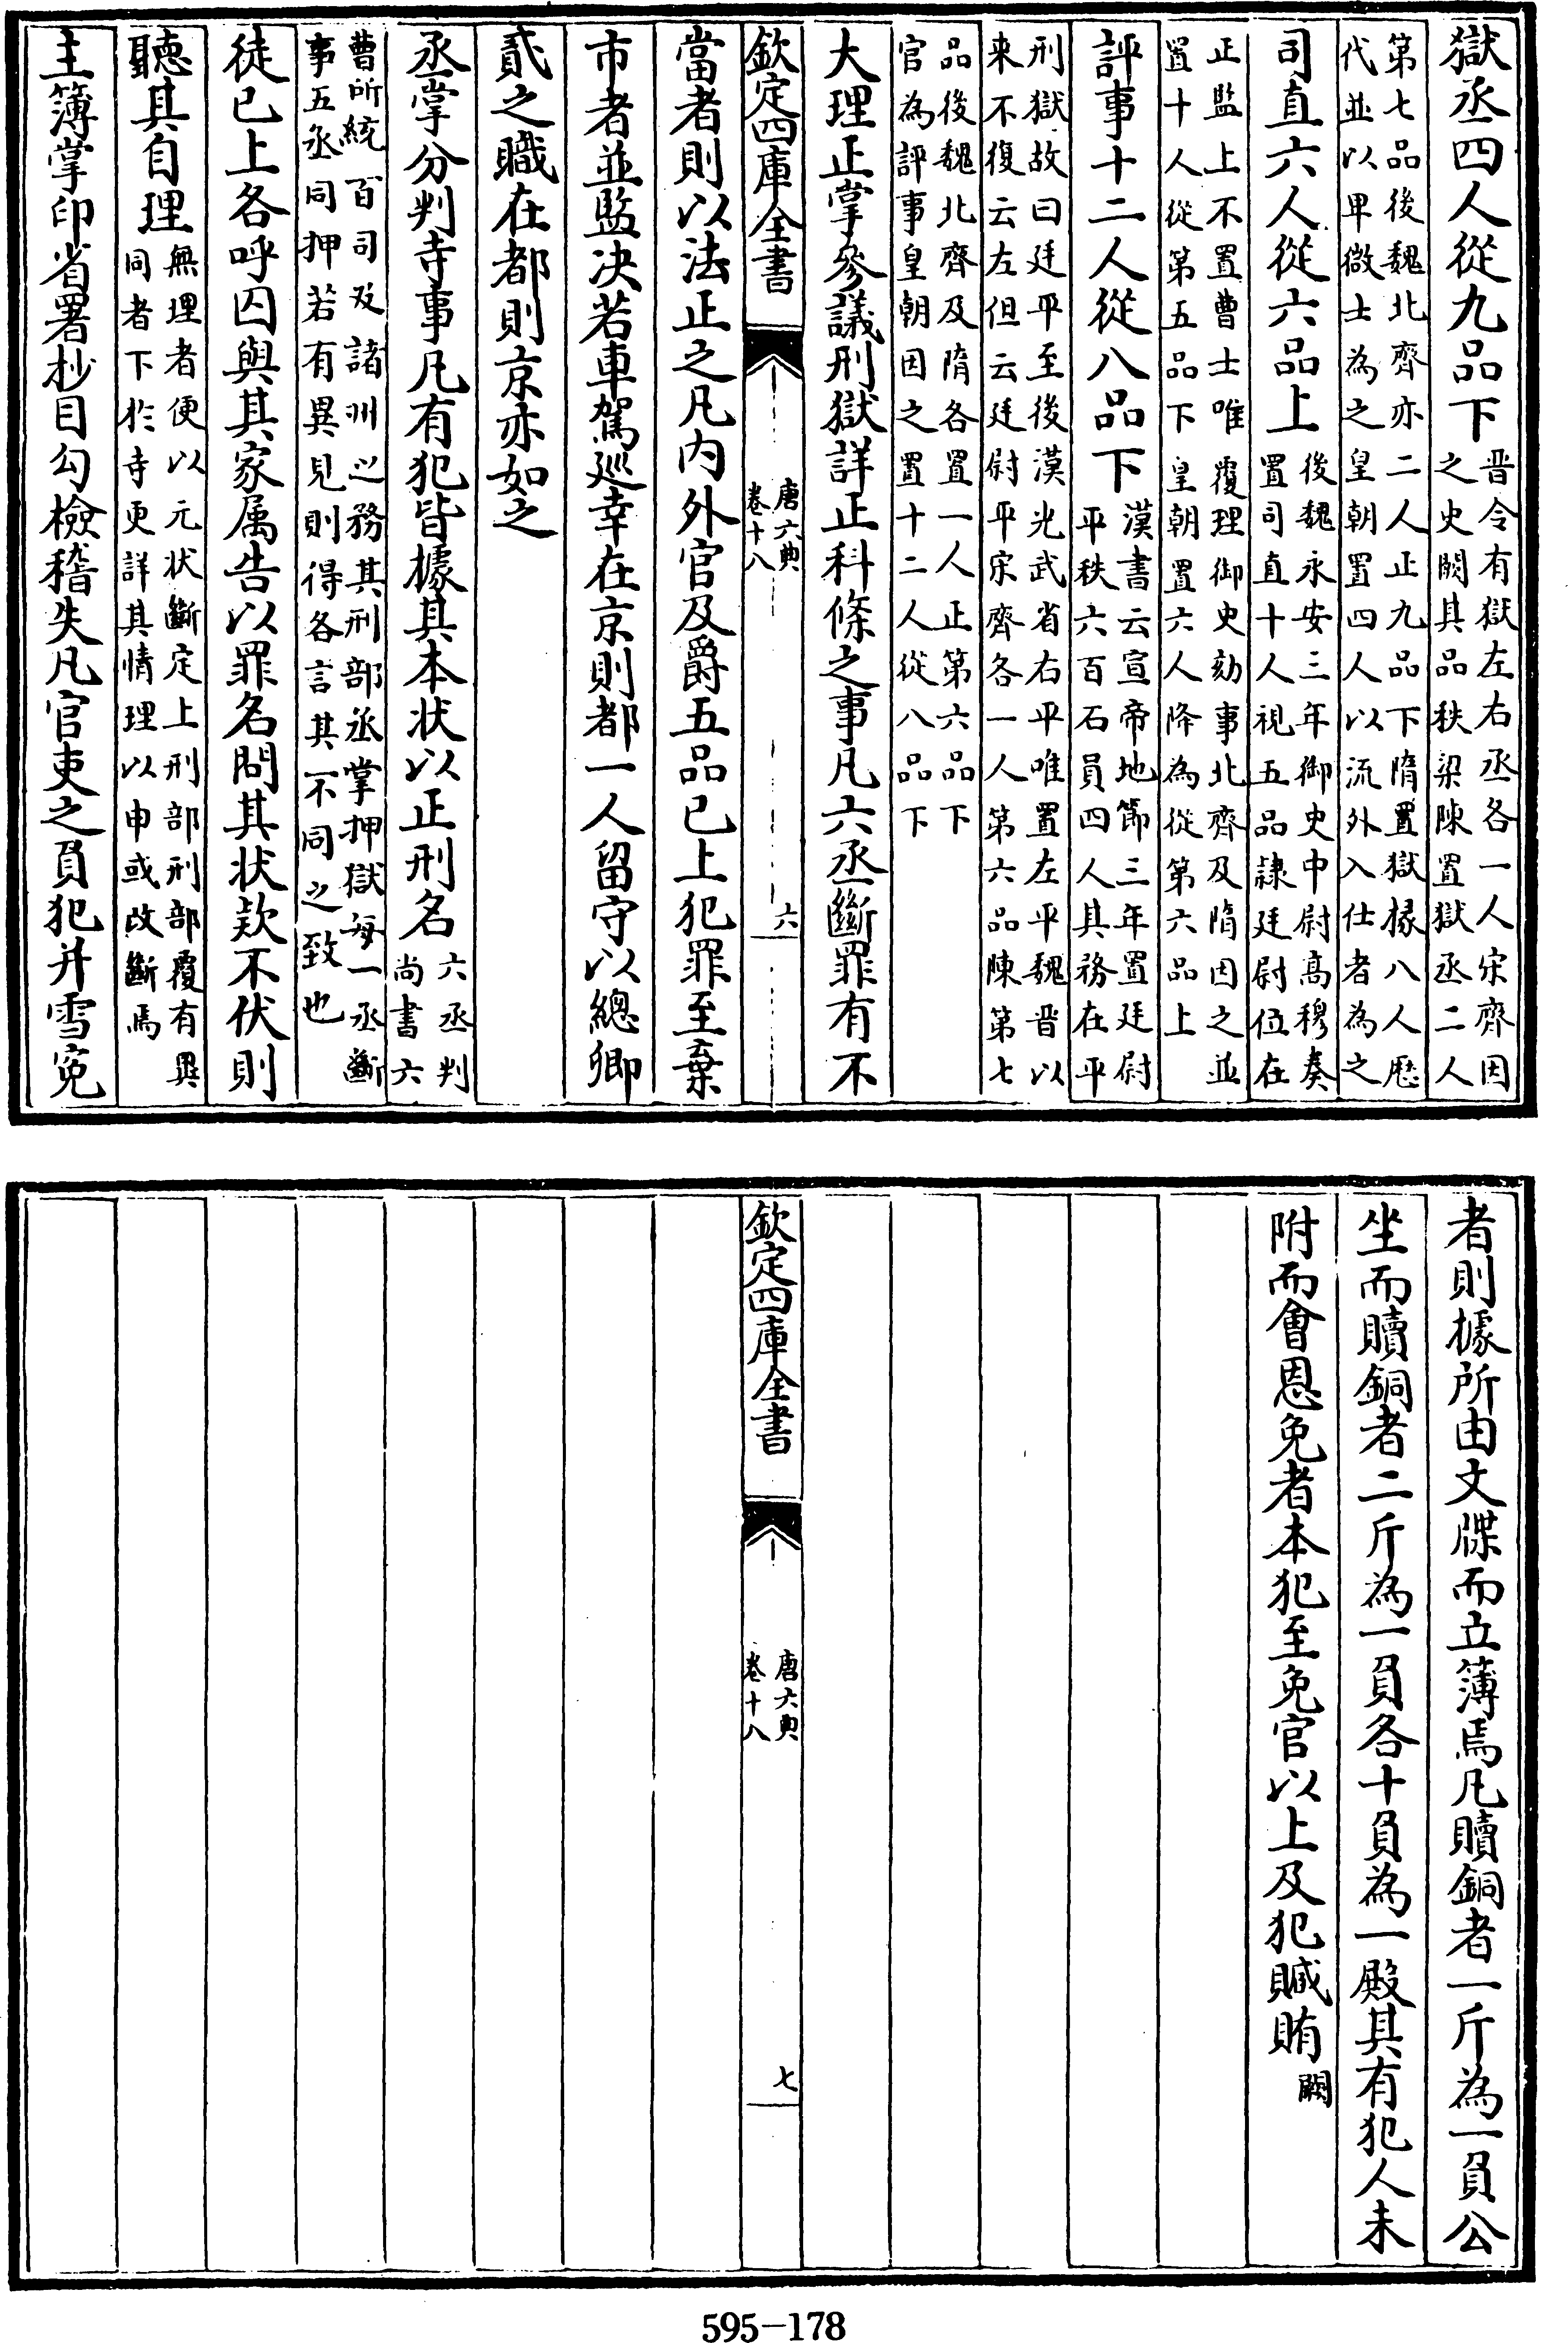 獄丞四人從九品下晉令有獄左右丞各一人宋齊因之史闕其品秩梁陳置獄丞二人
第七品後魏北齊亦二人正九品下隋置獄掾八人厯代並以卑微士為之皇朝置四人以流外入仕者為之
司直六人從六品上後魏永安三年御史中尉高穆奏置司直十人視五品隷廷尉位在
正監上不置曹士唯覆理御史劾事北齊及隋因之並置十人從第五品下皇朝置六人降為從第六品上
評事十二人從八品下漢書云宣帝地節三年置廷尉平秩六百石員四人其務在平
刑獄故曰廷平至後漢光武省右平唯置左平魏晉以来不復云左但云廷尉平宋齊各一人第六品陳第七
品後魏北齊及隋各置一人正第六品下官為評事皇朝因之置十二人從八品下
大理正掌參議刑獄詳正科條之事凡六丞斷罪有不
欽定四庫全書
唐六典
卷十八
六
當者則以法正之凡内外官及爵五品已上犯罪至棄
市者並監決若車駕廵幸在京則都一人留守以總卿
貳之職在都則京亦如之
丞掌分判寺事凡有犯皆據其本状以正刑名六丞判尚書六
曹所統百司及諸州之務其刑部丞掌押獄每一丞斷事五丞同押若有異見則得各言其不同之致也
徒已上各呼囚與其家属告以罪名問其状欵不伏則
聽其自理無理者便以元状斷定上刑部刑部覆有異同者下於寺更詳其情理以申或改斷焉
主簿掌印省署抄目勾檢稽失凡官吏之負犯并雪寃
者則據所由文牒而立簿焉凡贖銅者一斤為一負公
坐而贖銅者二斤為一負各十負為一殿其有犯人未
附而會恩免者本犯至免官以上及犯贓賄闕
欽定四庫全書
唐六典
卷十八
七
595-178